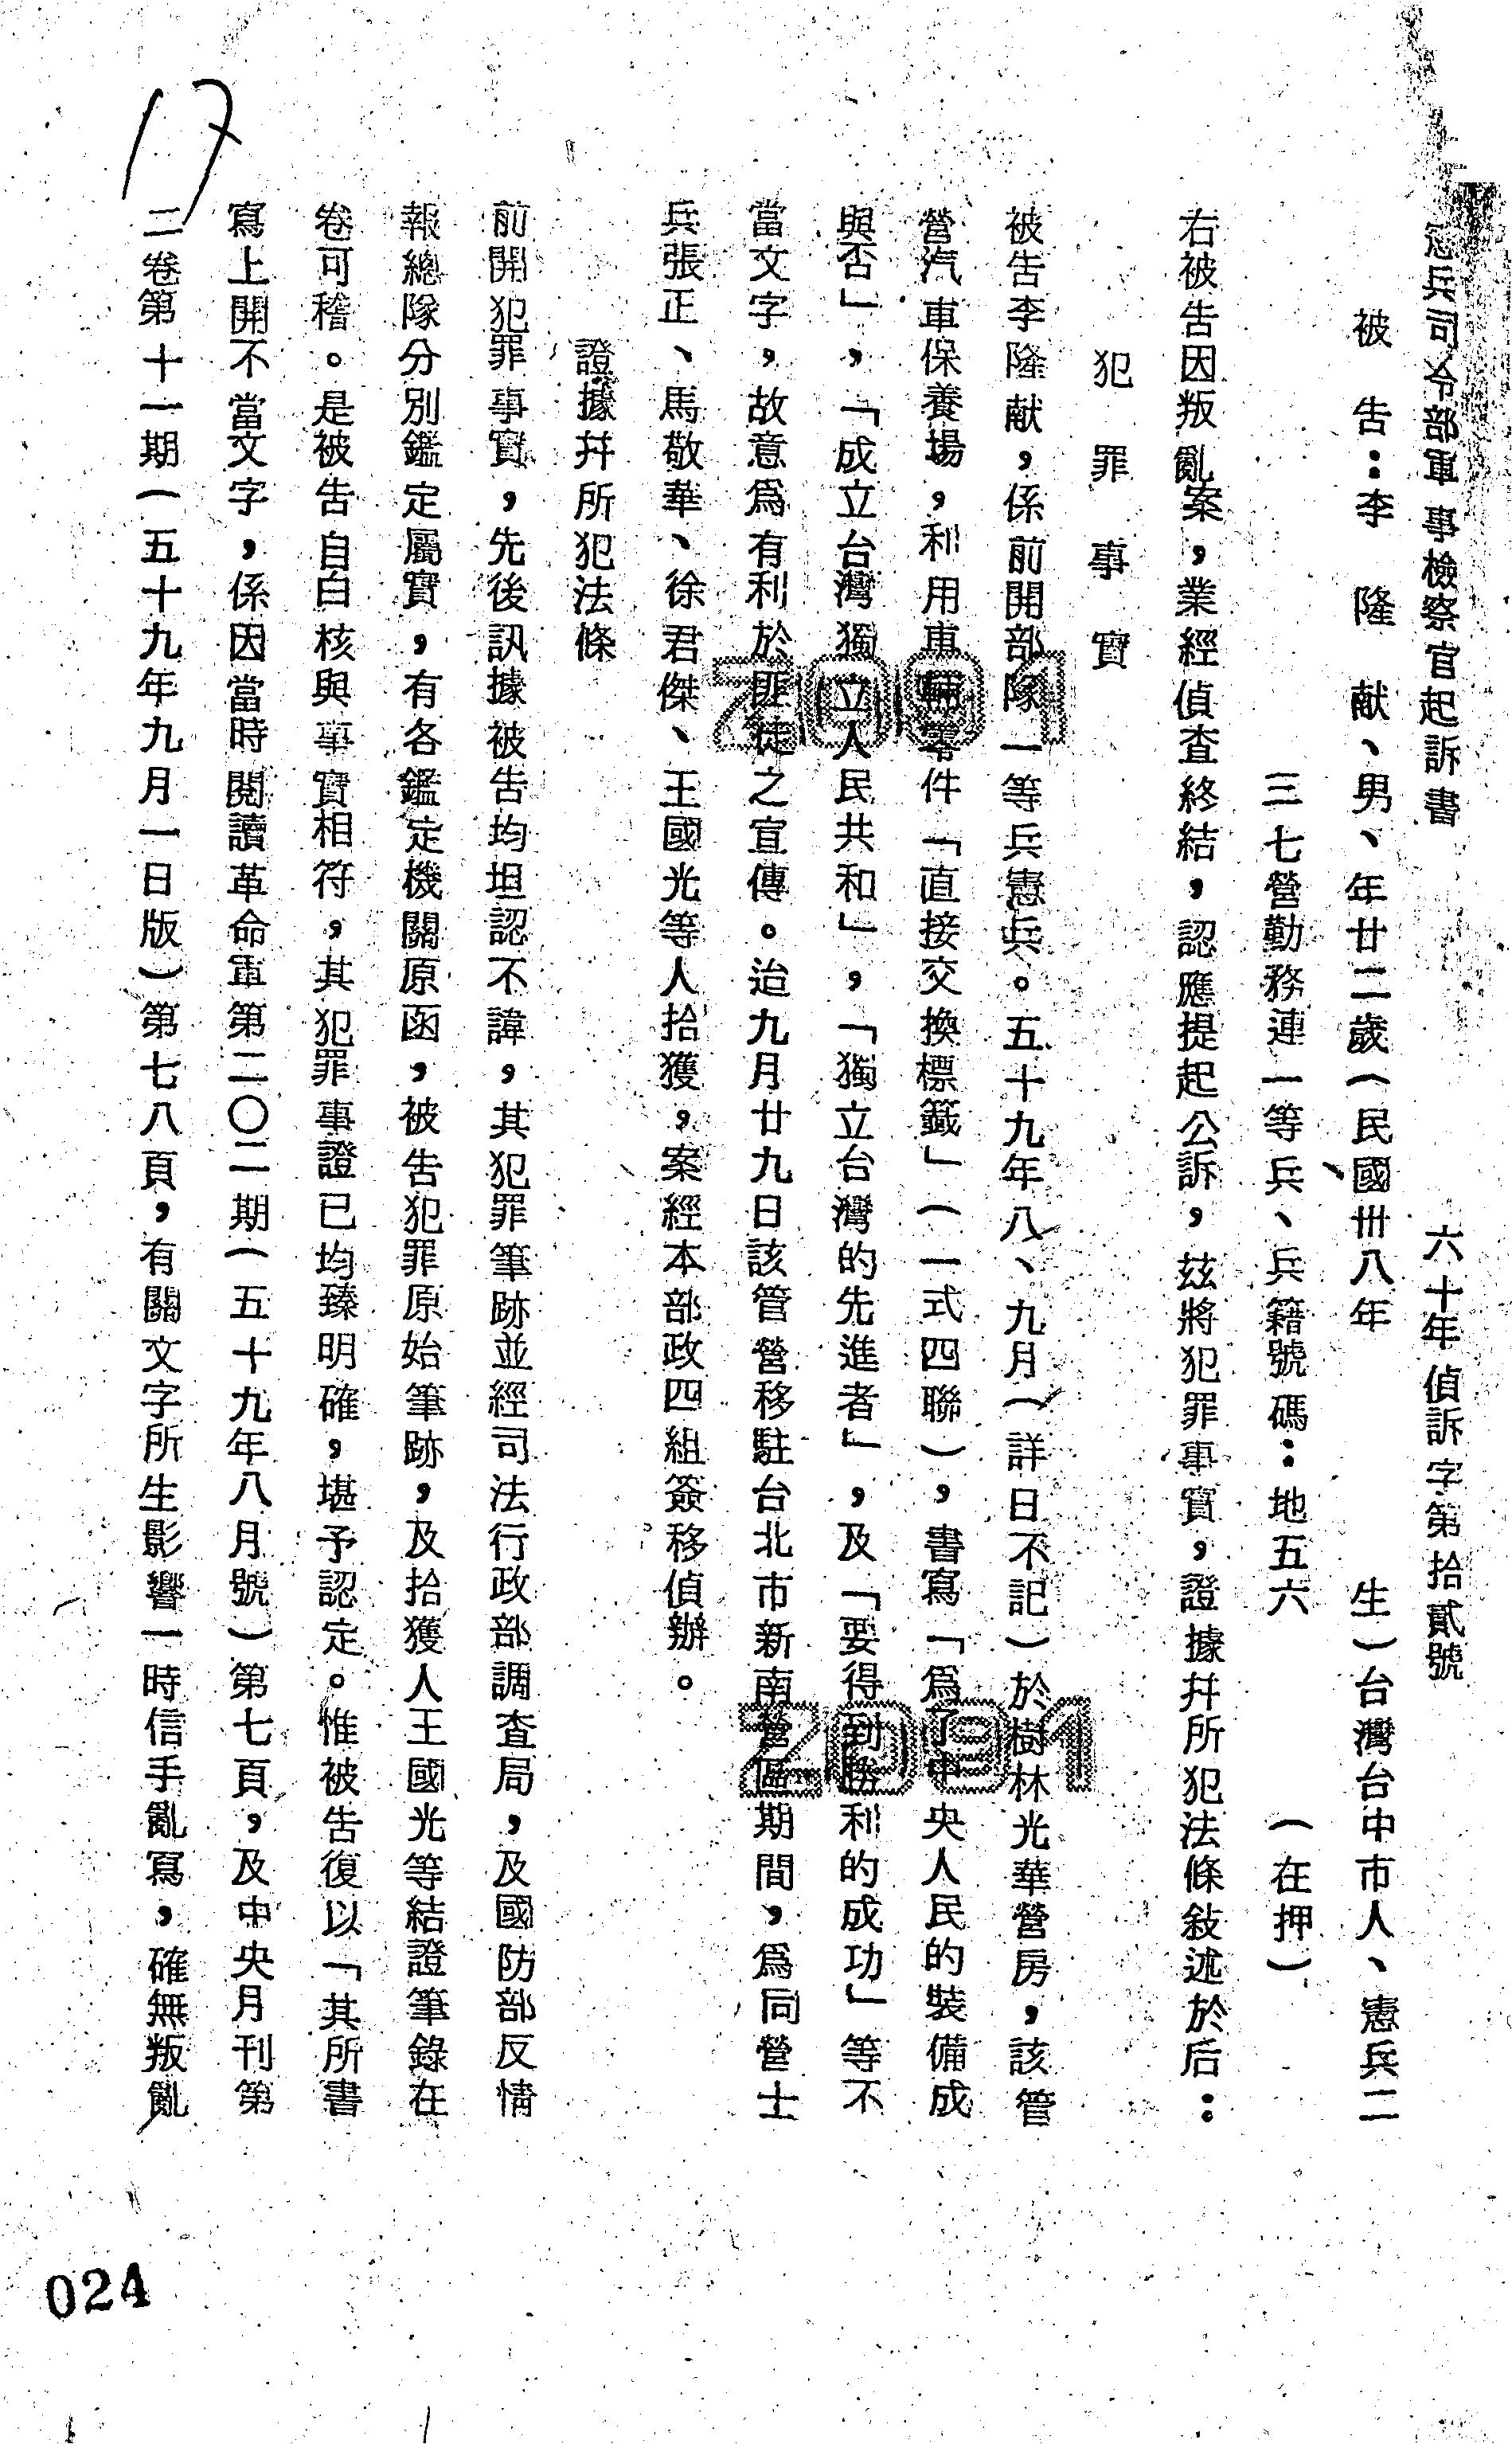 憲兵司令部軍事檢察官起訴書　六十年偵訴字第拾貳號
被告：李隆献、男、年廿二歲（民國卅八年　　生）台灣台中市人、憲兵二
三七營勤務連一等兵、兵籍號碼：地五六　　（在押）
右被告因叛亂案，業經偵查終結，認應提起公訴，茲將犯罪事實，證據幷所犯法條敍述於后：
犯罪事實
被告李隆献，係前開部隊一等兵憲兵。五十九年八、九月（詳日不記）於樹林光華營房，該管
營汽車保養場，利用車輛零件「直接交換標籤」（一式四聯），書寫「爲了中央人民的裝備成
與否」，「成立台灣獨立人民共和」，「獨立台灣的先進者」，及「要得到勝利的成功」等不
當文字，故意爲有利於匪徒之宣傳。迨九月廿九日該管營移駐台北市新南營區期間，爲同營士
兵張正、馬敬華、徐君傑、王國光等人拾獲，案經本部政四組簽移偵辦。
證據幷所犯法條
前開犯罪事實，先後訊據被告均坦認不諱，其犯罪筆跡並經司法行政部調查局，及國防部反情
報總隊分別鑑定屬實，有各鑑定機關原函，被告犯罪原始筆跡，及拾獲人王國光等結證筆錄在
卷可稽。是被告自白核與事實相符，其犯罪事證已均臻明確，堪予認定。惟被告復以「其所書
寫上開不當文字，係因當時閱讀革命軍第二〇二期（五十九年八月號）第七頁，及中央月刊第
二卷第十一期（五十九年九月一日版）第七八頁，有關文字所生影響一時信手亂寫，確無叛亂
17
Z091
Z091
024